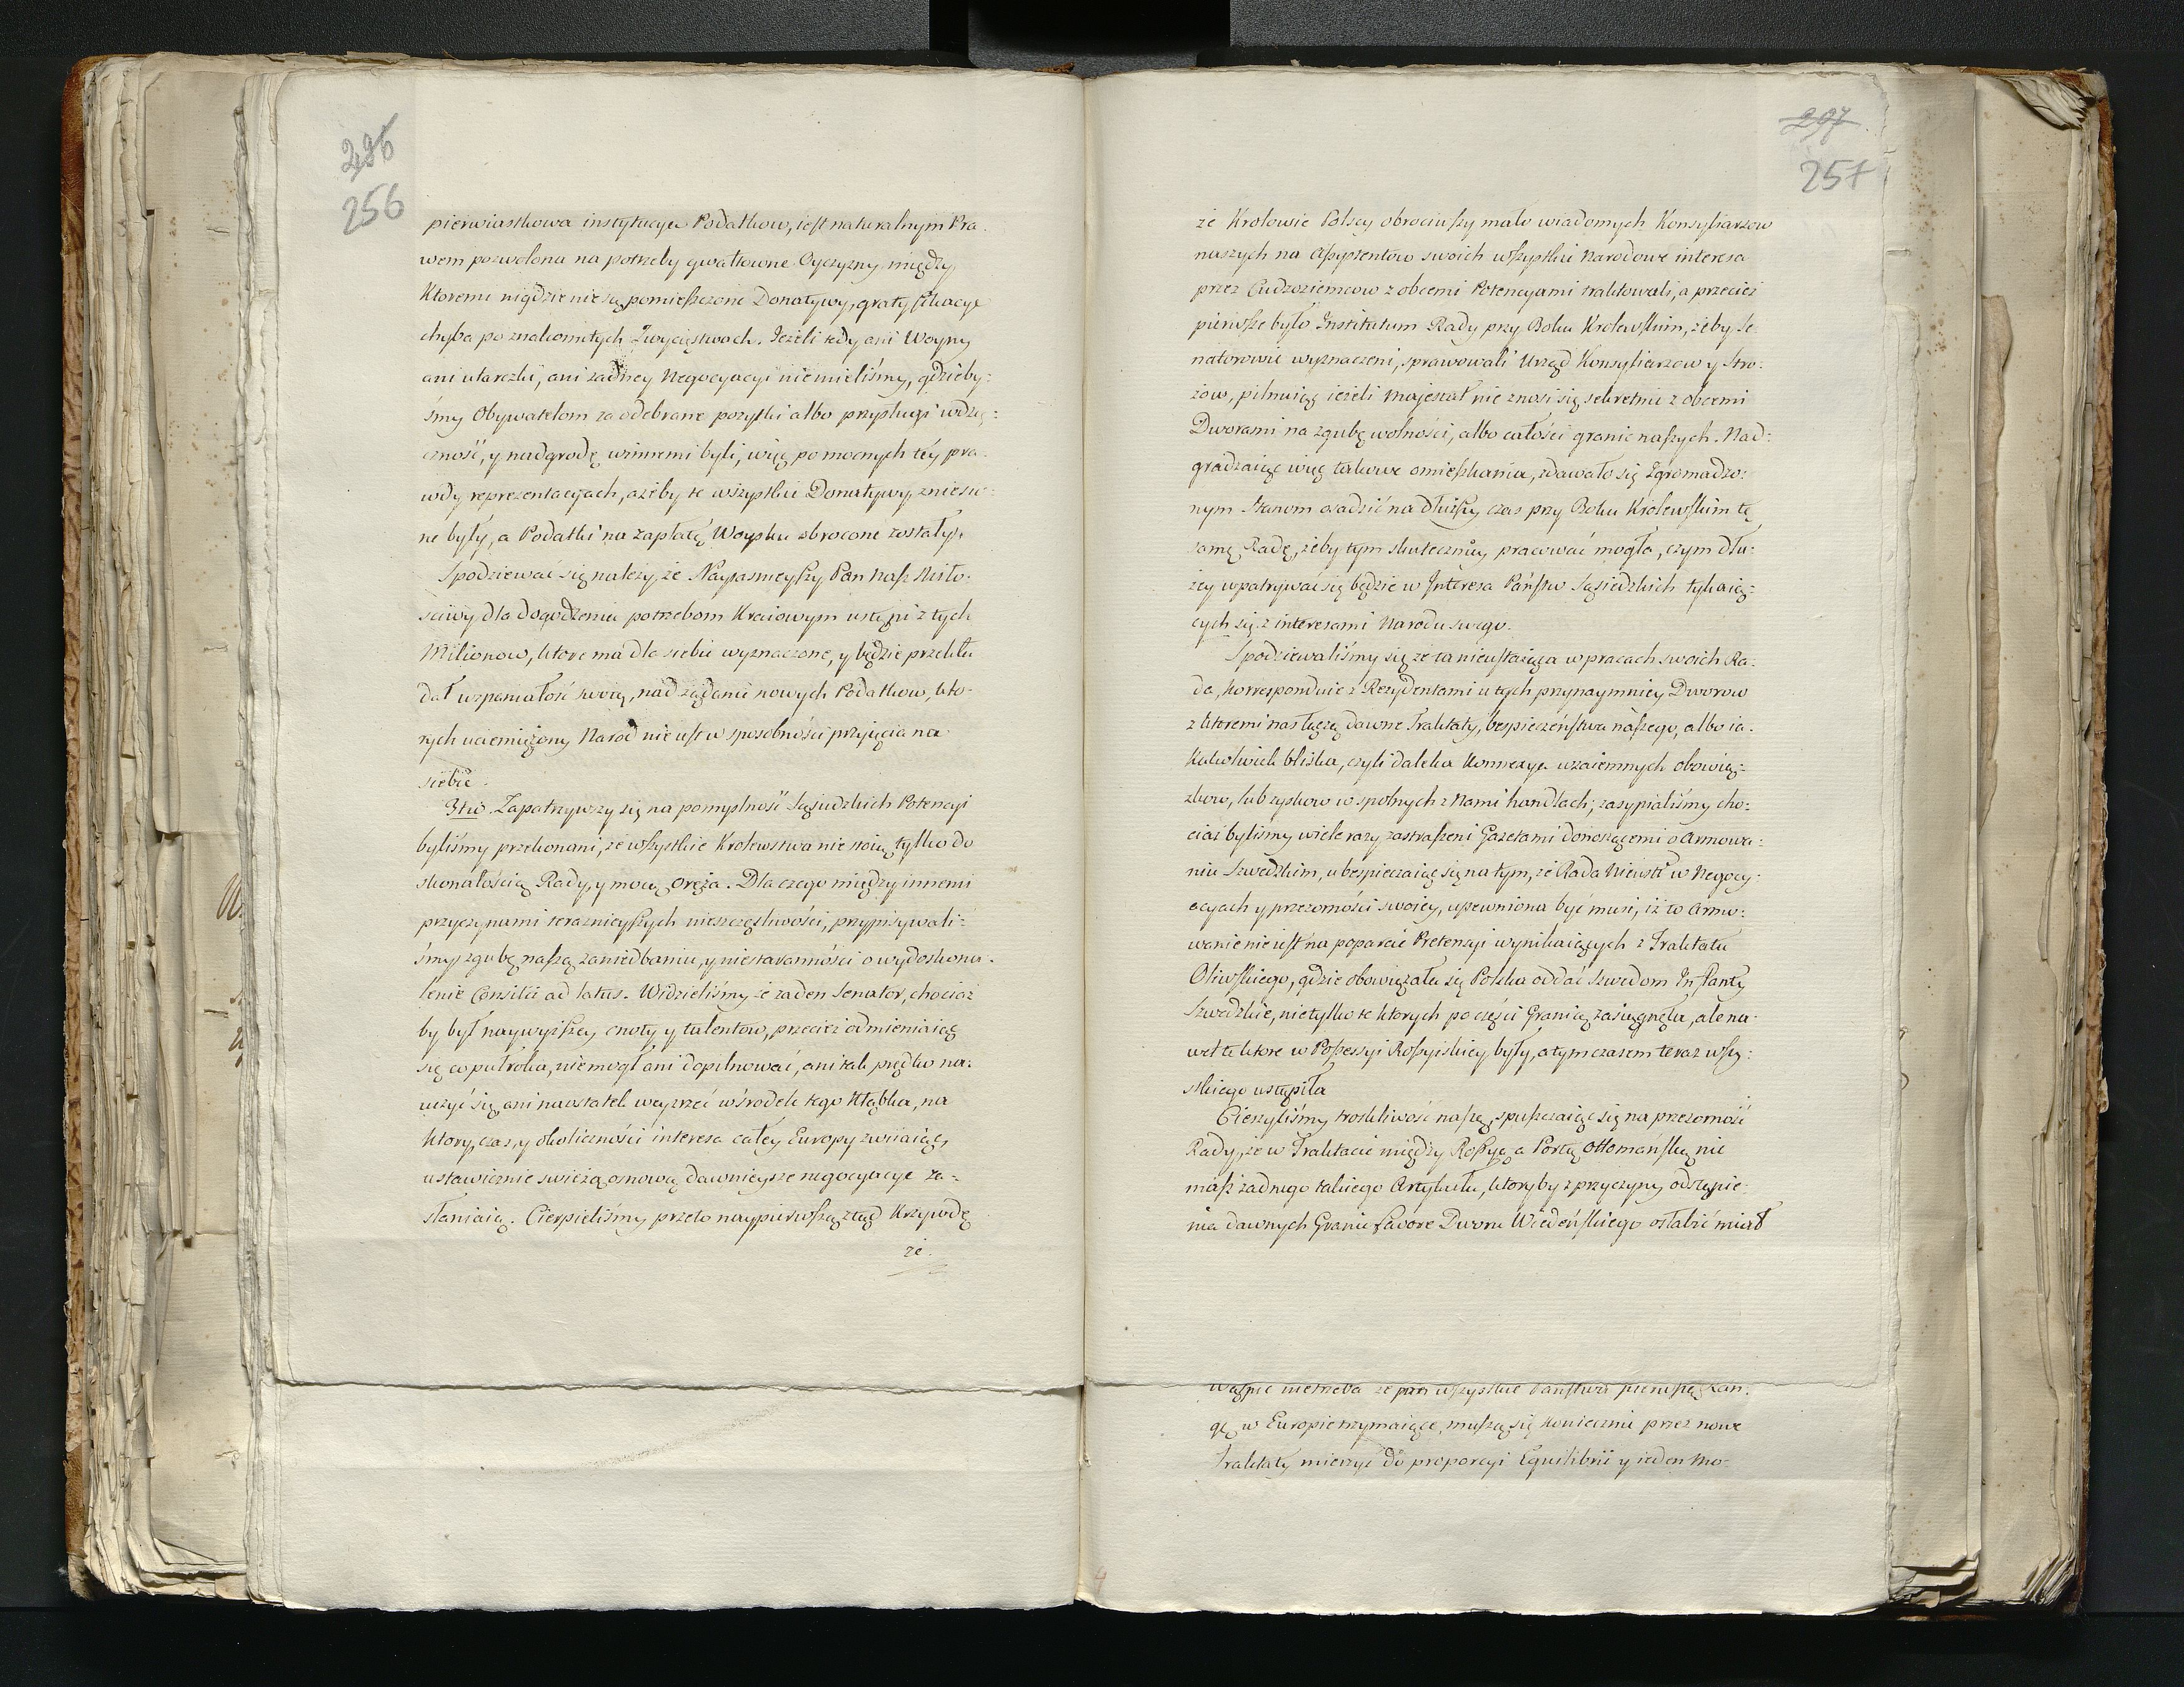 296
256
pierwiastkowa instytucya Podatkow, iest naturalnym Pra-
wem pozwolona na potrzeby gwałtowne Oyczyzny między
Ktoremi nigdzie nie są pomieszczone Donatywy, gratyfikacye
chyba po znakomitych Zwycięstwach. Jeżeli tedy ani Woyny
ani utarczki, ani żadney Negocyacyi niemieliśmy, gdzieby-
śmy Obywatelom za odebrane pozytki albo przysługi wdzię-
czność, y nadgrodę winnemi byli, więc po mocnych téy pra-
wdy reprezentacyach, ażeby te wszystkie Donatywy zniesio-
ne były, a Podatki na zapłatę Woyska obrocone zostały.
Spodziewać się należy, że Nayiasnieyszy Pan Nasz Miło-
sciwy dla dogodzenia potrzebom Kraiowym ustąpi z tych
Milionow, ktore ma dla siebie wyznaczone, y będzie przekła-
dał wspaniałość swoię, nad żądanie nowych Podatkow, kto-
rych uciemiężony Narod nie iest w sposobności przyięcia na
siebie.
3tio Zapatrzywszy się na pomyslność Sąsiedzkich Potencyi
byliśmy przekonani, że wszystkie Krolewstwa nie stoią tylko do
skonałością Rady, y mocą oręża. Dla czego między innemi
przyczynami teraznieyszych nieszczęśliwości, przypisywali-
śmy zgubę naszą zaniedbaniu, y niestaranności o wydoskona-
lenie Consilii ad latus. Widzieliśmy że żaden Senator, chociaż
by był naywyższey cnoty y talentow, przecież odmieniaiąc
się co pułroka, niemogł ani dopilnować, ani tak prędko na-
uczyć się, ani naostatek weyrzeć w środek tego Kłębka, na
ktory, czas, y okoliczności interesa całey Europy zwiiaiąc,
ustawicznie swieżą osnową dawnieysze negocyacye za-
słaniaią. Cierpieliśmy przeto naypierwszą ztąd Krzywdę
że
297
257
że Krolowie Polscy obrociwszy mało wiadomych Konsyliarzow
naszych na Assystentow swoich wszystkie Narodowe interesa
przez Cudzoziemcow z obcemi Potencyami traktowali, a przecież
pierwsze było Institutum Rady przy Boku Krolewskim, żeby Se-
natorowie wyznaczeni, sprawowali Urząd Konsyliarzow y Stro-
żow, pilnuiąc ieżeli Majestat nie znosi się sekretnie z obcemi
Dworami na zgubę wolności, albo całości granic naszych. Nad-
gradzaiąc więc takowe omieszkania, zdawało się Zgromadzo-
nym Stanom osadzić na dłuższy czas przy Boku Krolewskim tę
samę Radę, żeby tym skuteczniey pracować mogła, czym dłu-
żey wpatrywać się będzie w Interesa Państw Sąsiedzkich tykaią-
cych się z interesami Narodu swego.
Spodziewaliśmy się że ta nieustaiąca w pracach swoich Ra-
da, korresponduie z Rezydentami u tych przynaymniey Dworow
z ktoremi nas łączą dawne Traktaty, bespieczeństwa naszego, albo ia-
kakolwiek bliska, czyli daleka Konnexya wzaiemnych obowią-
zkow, lub zyskow wspolnych z Nami handlach; zasypialiśmy cho-
ciaż byliśmy wiele razy zastraszeni Gazetami donoszącemi o Armowa-
niu Szwedzkim, ubespieczaiąc się na tym, że Rada Nieust: w Negocy-
acyach y przezorności swoiey, upewniona być musi, iż to armo-
wanie nie iest na poparcie Pretensyi wynikaiących z Traktatu
Oliwskiego, gdzie obowiązała się Polska oddać Szwedom Inflanty
Szwedzkie, nie tylko te ktorych po części Granicą zasiągnęła, ale na-
wet te ktore w Possessyi Rossyiskiey były, a tym czasem teraz wszy-
stkiego ustąpiła
Cieszyliśmy troskliwość naszę, spuszczaiąc się na przezorność
Rady, że w Traktacie między Rossyą, a Portą Ottomańską nie
masz żadnego takiego Artykułu, ktoryby z przyczyny odstąpie-
nia dawnych Granic favore Dworu Wiedeńskiego osłabić miał
wątpić nietrzeba że wszystkie Państwa pierwszą Ran-
gę w Europie trzymaiące, muszą się koniecznie przez nowe
Traktaty mierzyć do proporcyi Equilibrii y ieden Mo-